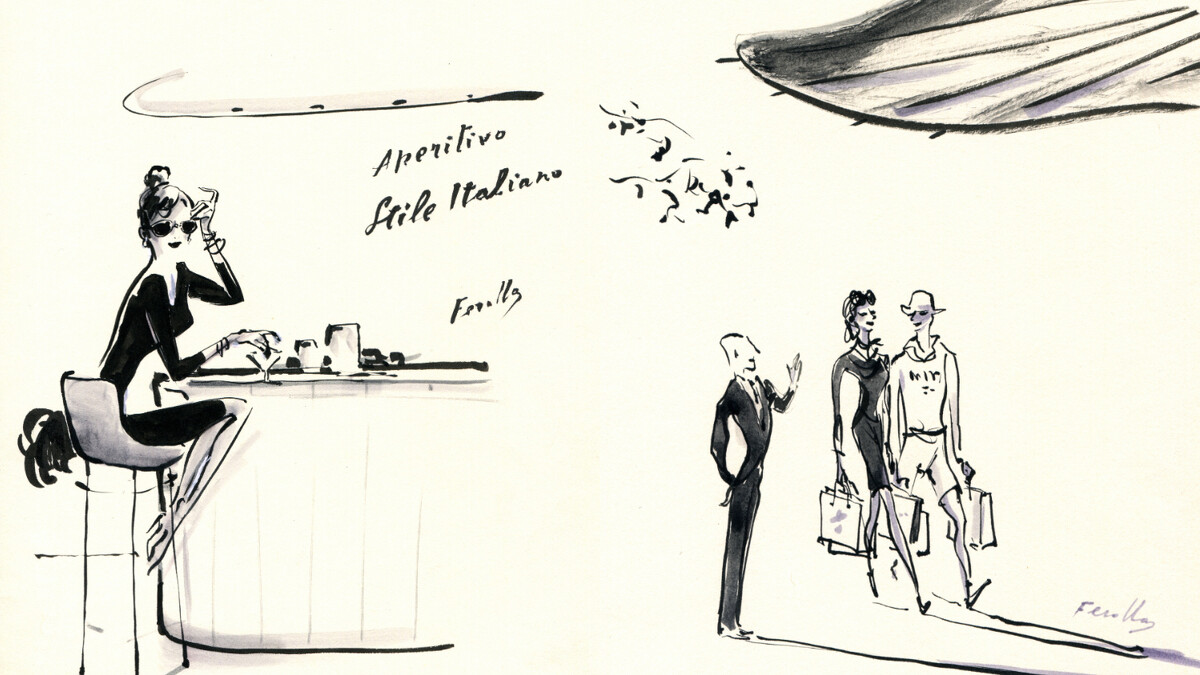 Aperitivo
Stile Italiano
Ferolla
Ferolla